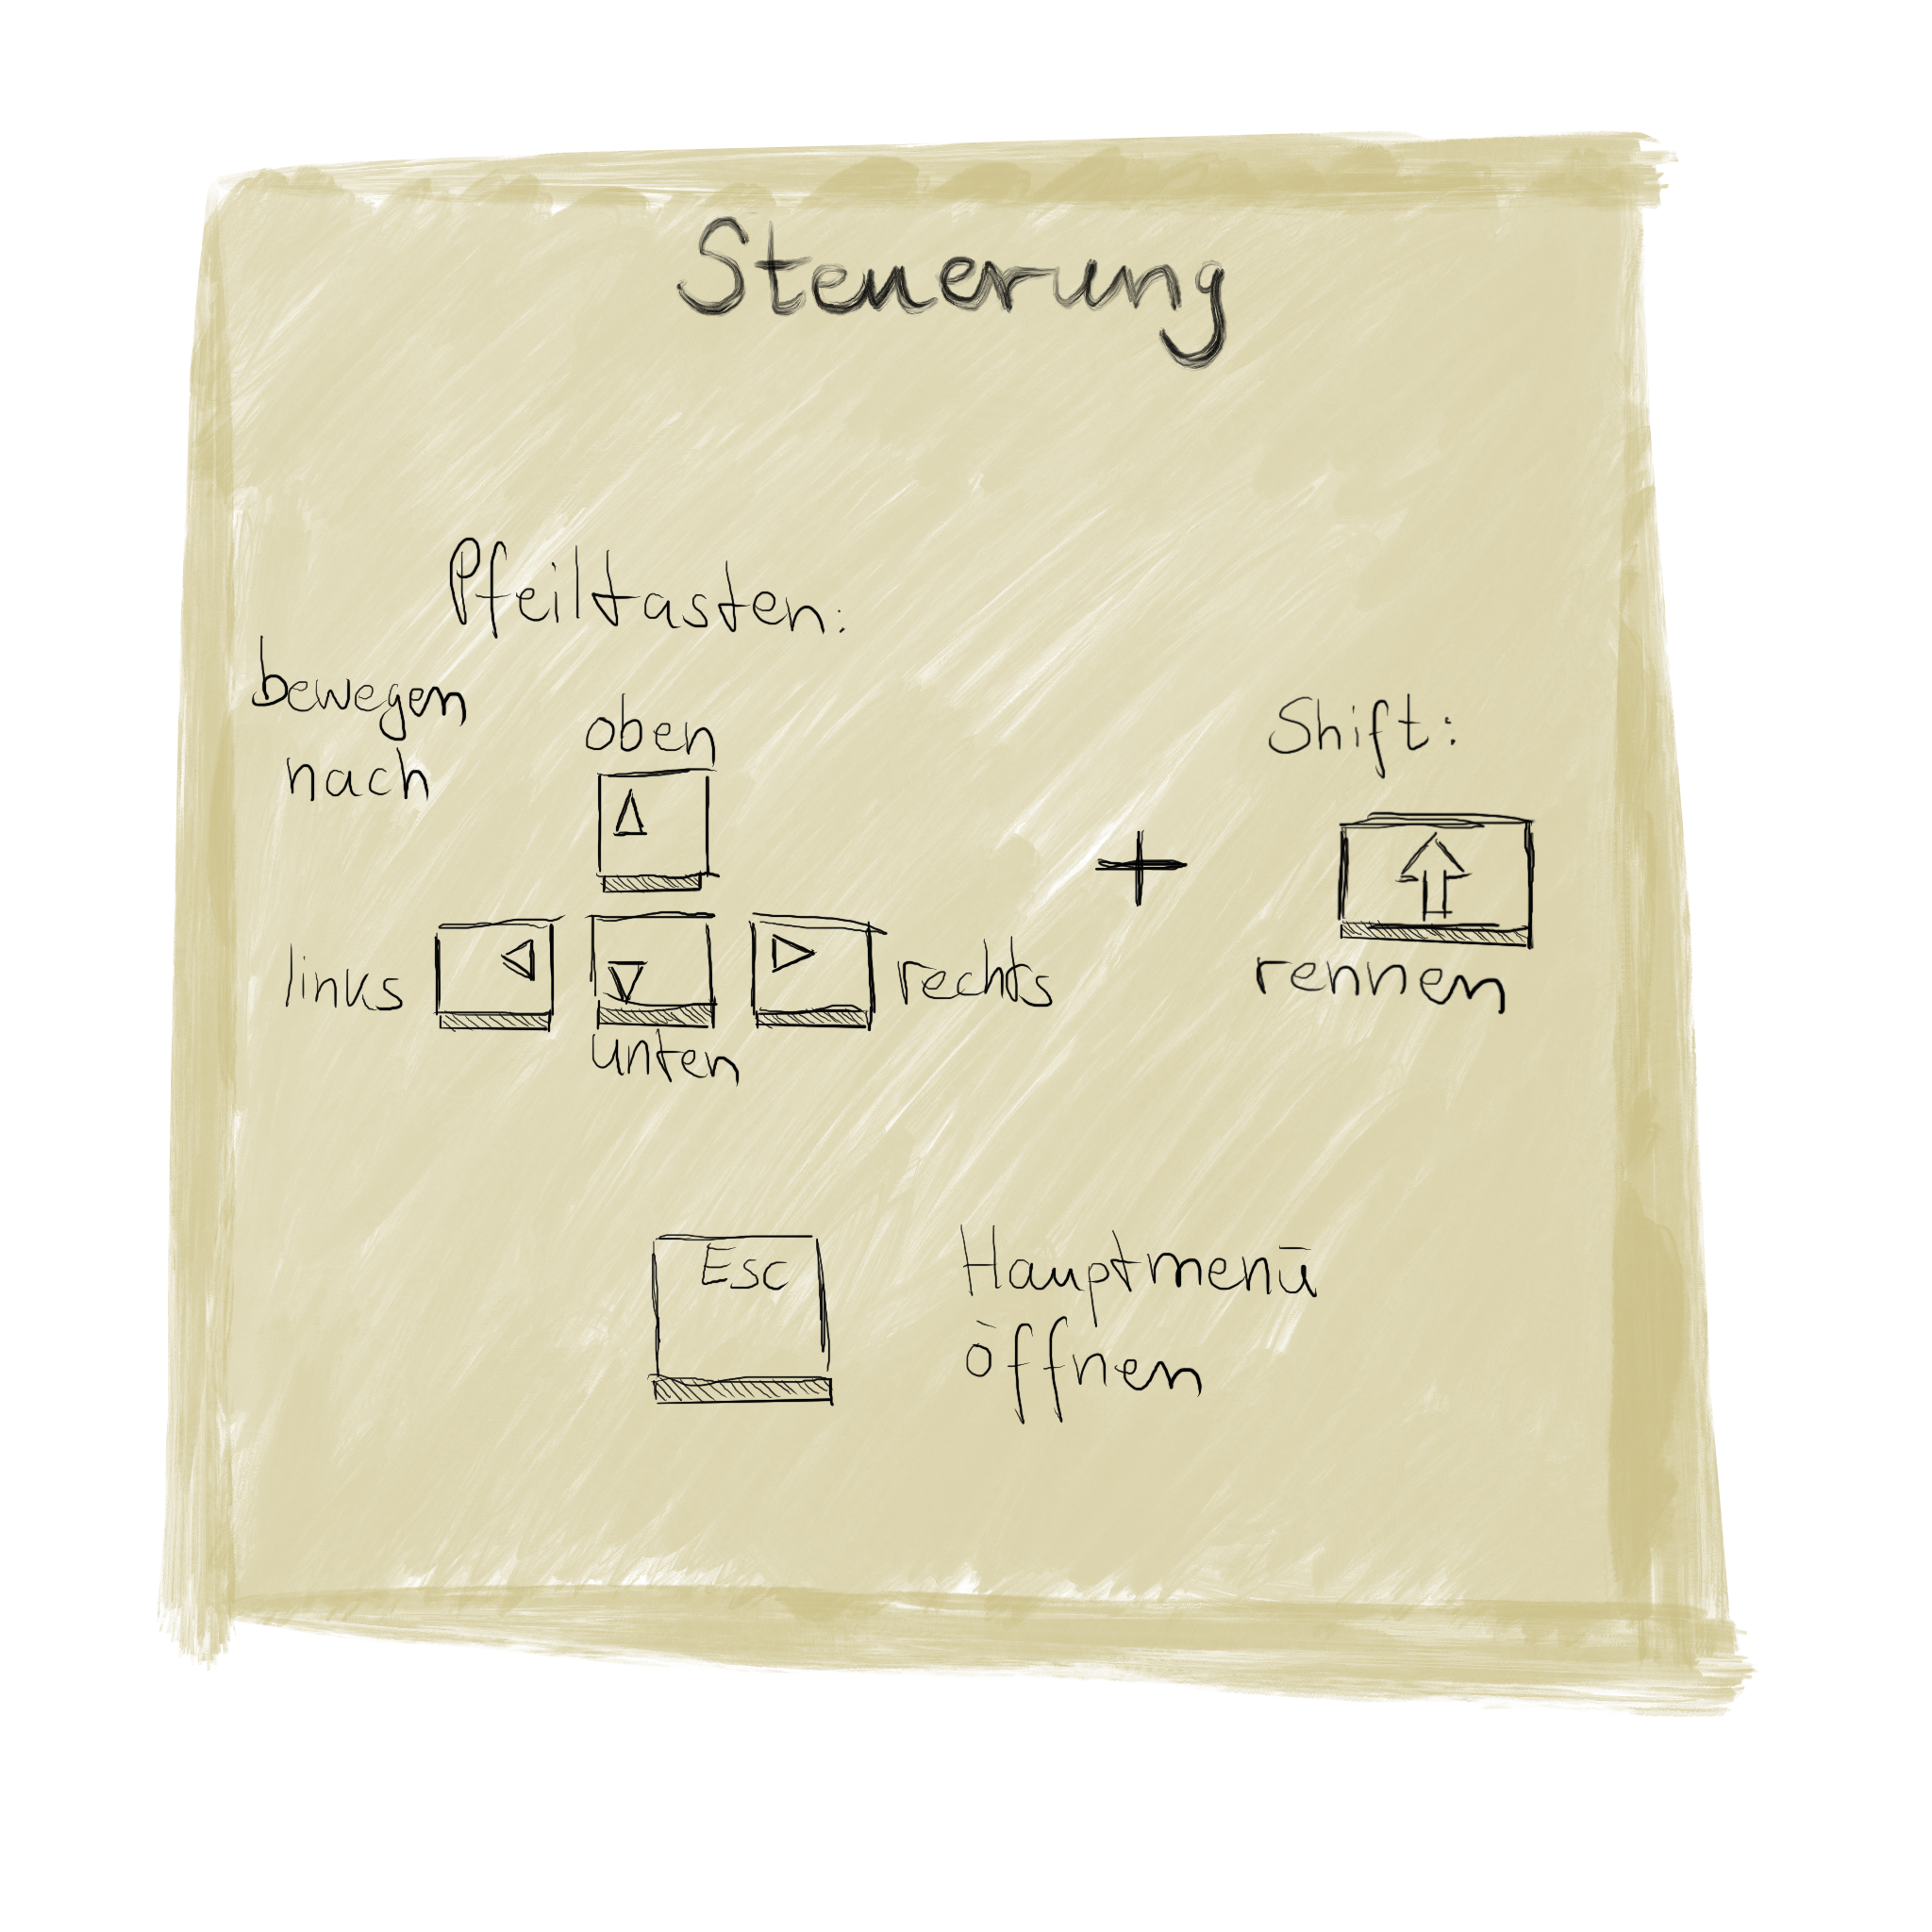 Steuerung
Pfeiltasten:
bewegen
nach
oben
links
rechts
unten
+
Shift:
rennen
Esc
Hauptmenü
öffnen